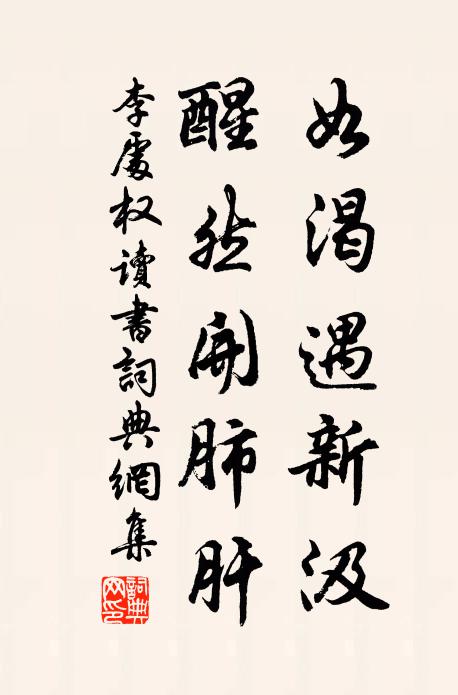 如渴遇新汲
醒然開肺肝
李處权讀書詞典網集
詞典网印